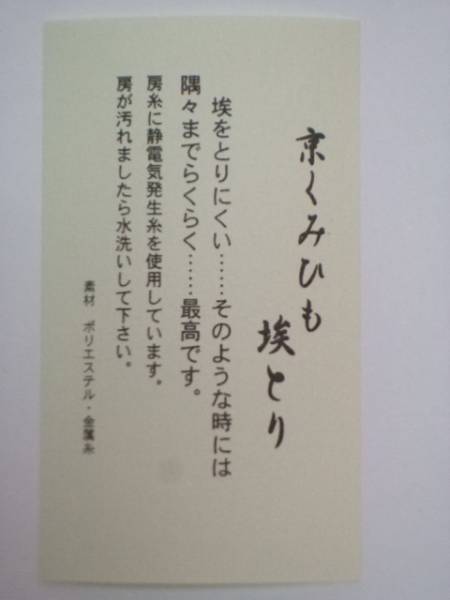 京くみひも
埃とり
埃をとりにくい……そのような時には
隅々までらくらく……最高です。
房糸に静電気発生糸を使用しています。
房が汚れましたら水洗いして下さい。
素材　ポリエステル・金属糸